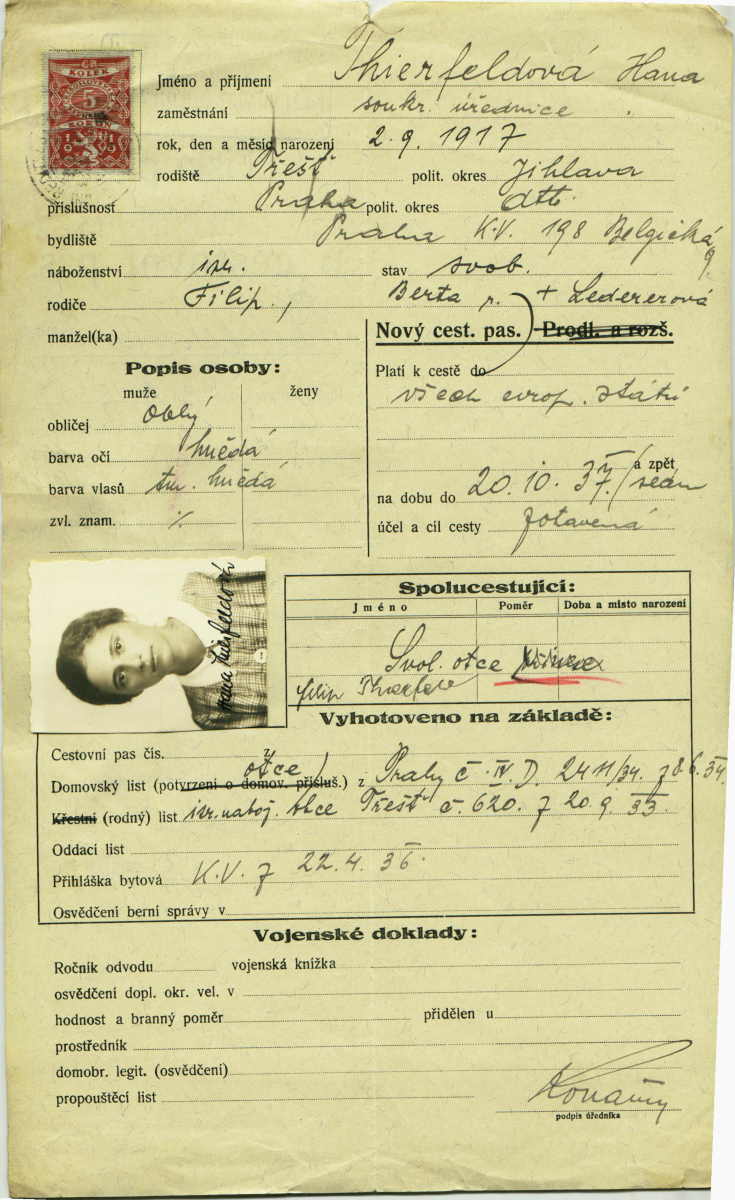 KOLEK
5
KORUN
Jméno a příjmení Thierfeldová Hana
zaměstnání soukr. úřednice
rok, den a měsíc narození 2. 9. 1917
rodiště Třešť polit. okres Jihlava
příslušnost Praha polit. okres dtto.
bydliště Praha K.V. 198 Belgická 9.
náboženství isr. stav svob.
rodiče Filip, Berta r. + Ledererová
manžel(ka)
Nový cest. pas. Prodl. a rozš.
Popis osoby:
muže ženy
obličej oblý
barva očí hnědá
barva vlasů tm. hnědá
zvl. znam. %
Platí k cestě do
všech evrop. států
a zpět
na dobu do 20. 10. 37.
účel a cíl cesty zotavená
Hana Thierfeldová
Spolucestující:
Jméno Poměr Doba a místo narození
Svol. otce
Filip Thierfeld
Vyhotoveno na základě:
Cestovní pas čís.
otce
Domovský list (potvrzení o domov. přísluš.) z Prahy č. IV. D. 2411/34. z 8.6.34.
Křestní (rodný) list isr. nábož. obce Třešť č. 620. z 20. 9. 33.
Oddací list
Přihláška bytová K.V. z 22. 4. 36.
Osvědčení berní správy v
Vojenské doklady:
Ročník odvodu vojenská knížka
osvědčení dopl. okr. vel. v
hodnost a branný poměr přidělen u
prostředník
domobr. legit. (osvědčení)
propouštěcí list
podpis úředníka